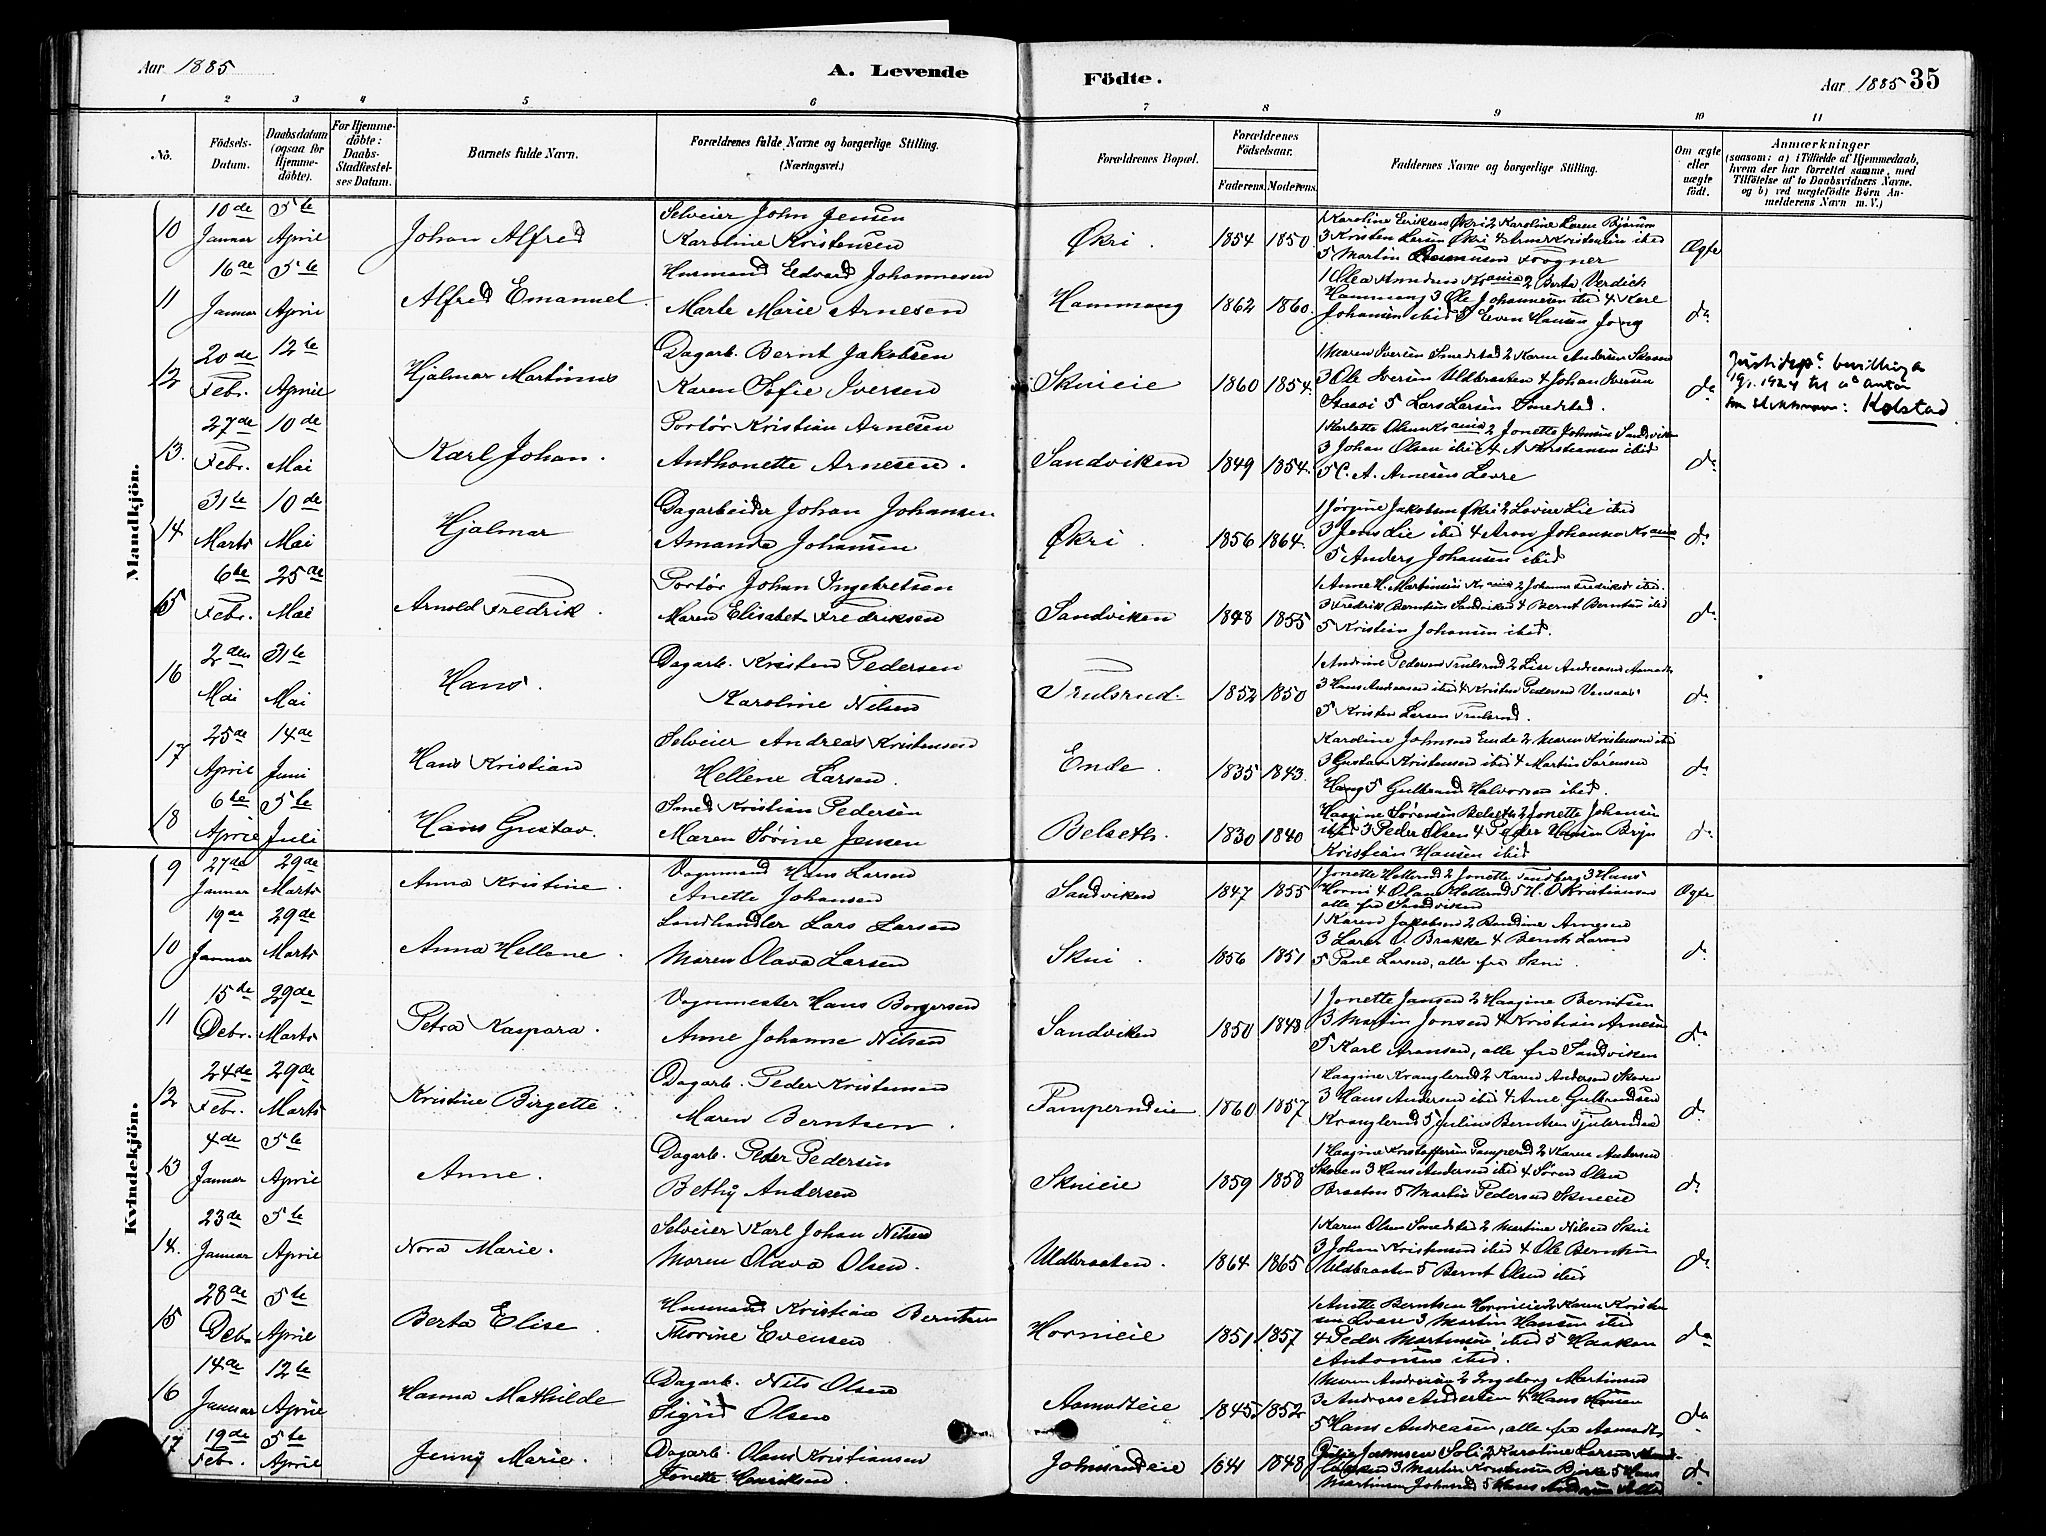 Aar 1885
A. Levende
Födte.
Aar 1885 35
1 2 3 4 5 6 7 8 9 10 11
No. Födsels-Datum. Daabsdatum (ogsaa for Hjemme-döbte). For Hjemme-döbte: Daabs-Stadfæstel-ses Datum. Barnets fulde Navn. Forældrenes fulde Navne og borgerlige Stilling. (Næringsvei.) Forældrenes Bopæl. Forældrenes Födselsaar. Faderens. Moderens. Faddernes Navne og borgerlige Stilling. Om ægte eller uægte födt. Anmærkninger (saasom: a) i Tilfælde af Hjemmedaab, hvem der har forrettet samme, med Tilföielse af to Daabsvidners Navne. og b) ved uægtefödte Börn An-melderens Navn m. V.)
Mandkjön.
10 10de Januar 5te April Johan Alfred Selveier John Jensen
Karoline Kristensen Økri. 1854 1850. 1 Karoline Eriksen Økri 2 Karoline Laren Bjørum
3 Kristen Larsen Økri 4 Arne Kristensen ibid
5 Martin Rasmussen Fogner Ægte
11 16de Januar 5te April Alfred Emanuel. Husmand Edvard Johannesen
Marte Marie Arnesen Hammang 1862 1860. 2 Berta Verdich
Hammang 3 Ole Johannesen ibid 4 Karl
Johansen ibid 5 Even Hansen Jong do
12 20de Febr. 12te April Hjalmar Martinius Dagarb. Bernt Jakobsen
Karen Sofie Iversen Skuieie 1860 1854. 1 Maren Iversen Smedstad 2 Karen Andersen
3 Ole Iversen Uldbraaten 4 Johan Iversen
5 Lars Larsen Smedstad. do
bevilling
1924
Kolstad
13. 27de Febr. 10de Mai Karl Johan. Portör Kristian Arnesen
Anthonette Arnesen. Sandviken 1849 1854. 2 Jonette Johnsen Sandviken
3 Johan Olsen ibid 4 A Kristiansen ibid
5 C. A. Arnesen Levre do
14 31te Marts 10de Mai Hjalmar Dagarbeider Johan Johansen
Amanda Johansen Økri. 1856 1864. 1 Jørgine Jakobsen Økri 2 Lovise Lie ibid
3 Jens Lie ibid 4 Aron Johansen
5 Anders Johansen ibid do
15 6te Febr. 25de Mai Arnold Fredrik. Portör Johan Ingebretsen
Maren Elisabet Fredriksen Sandviken 1848 1855 1 Anne M. Martinsen
3 Fredrik Berntsen Sandviken 4 Bernt Berntsen ibid
5 Kristian Johansen ibid. do
16 2den Mai 31te Mai Hans. Dagarb. Kristen Pedersen
Karoline Nilsen Trulsrud. 1852 1850 1 Andrine Pedersen Trulsrud 2 Lise Andreasen Aamodt
3 Hans Andreasen ibid 4 Kristen Pedersen
5 Kristen Larsen Trulsrud. do
17 25de April 14de Juni Hans Kristian Selveier Andreas Kristensen
Hellene Larsen. Ende. 1835 1843. Karoline Johnsen Ende 2 Maren Kristensen ibid
3 Gustav Kristensen ibid 4 Martin Sørensen
Haug 5 Gulbrand Halvorsen ibid. do
18 6te April 5te Juli Hans Gustav. Smed Kristian Pedersen
Maren Sørine Jensen Belseth. 1830 1840 Haagine Sørensen Belseth 2 Jonette Johansen
ibid 3 Peder Olsen 4 Peder Hansen Bryn
Kristian Hansen ibid do
Kvindekjön.
9 27de Januar 29de Marts Anna Kristine. Vognmand Hans Larsen
Anette Johansen Sandviken 1847 1855 1 Jonette Hellerud 2 Jonette Sandberg 3 Hans
Horni 4 Olaus Hellerud 5 H. O Kristiansen
alle fra Sandviken Ægte
10 19de Januar 29de Marts Anna Hellene. Landhandler Lars Larsen
Maren Olava Larsen Skui. 1856 1851 1 Karen Jakobsen 2 Randine Arnesen
3 Lars O. Brakke 4 Bernt Larsen
5 Paul Larsen, alle fra Skui. do
11 15de Debr. 29de Marts Petra Kaspara. Vognmester Hans Borgersen
Anne Johanne Nilsen Sandviken 1850 1848. 1 Jonette Jansen 2 Haagine Berntsen
3 Martin Jonsen 4 Kristian Arnesen
5 Karl Aronsen, alle fra Sandviken do
12 24de Febr. 29de Marts Kristine Birgette. Dagarb. Peder Kristensen
Maren Berntsen. Pamperudeie 1860 1857 1 Haagine Kranglerud 2 Karen Andersen Skoven
3 Hans Andersen ibid 4 Arne Gulbrandsen
Kranglerud 5 Julius Berntsen do
13 4de Januar 5te April Anne. Dagarb. Peder Pedersen
Bethy Andersen Skuieie 1859 1858 1 Haagine Kristoffersen Pamperud 2 Karen Andersen
Skoven 3 Hans Andersen ibid 4 Søren Olsen
Braaten 5 Martin Pedersen Skuieie do
14. 23de Januar 5te April Nora Marie. Selveier Karl Johan Nilsen
Maren Olava Olsen. Uldbraaten. 1864 1865 1 Karen Olsen Smedstad 2 Martine Nilsen Skui
3 Johan Kristensen ibid 4 Ole Berntsen
Uldbraaten 5 Bernt Olsen ibid do
15 28de Debr. 5te April Berta Elise. Husmand Kristian Berntsen
Thorine Evensen Hornieie 1851 1857 1 Anette Berntsen Hornieie 2 Karen Kristen
sen 3 Martin Hansen ibid
4 Peder Martinsen ibid 5 Haakon
Antonsen ibid. do
16 14de Januar 12te April Hanna Mathilde Dagarb. Nils Olsen
Sigrid Olsen Aamodteie 1845 1852 1 Maren Andersen 2 Ingeborg Martinsen
3 Andreas Andersen 4 Hans Hansen
5 Hans Andreasen, alle fra Aamodt. do
17 19de Febr. 5te April Jenny Marie. Dagarb. Olaus Kristiansen
Jonette Henriksen. Johnsrudeie 1848 2 Karoline Larsen
3 Martin Kristensen
Martinsen Johnsrud 5 Hans do